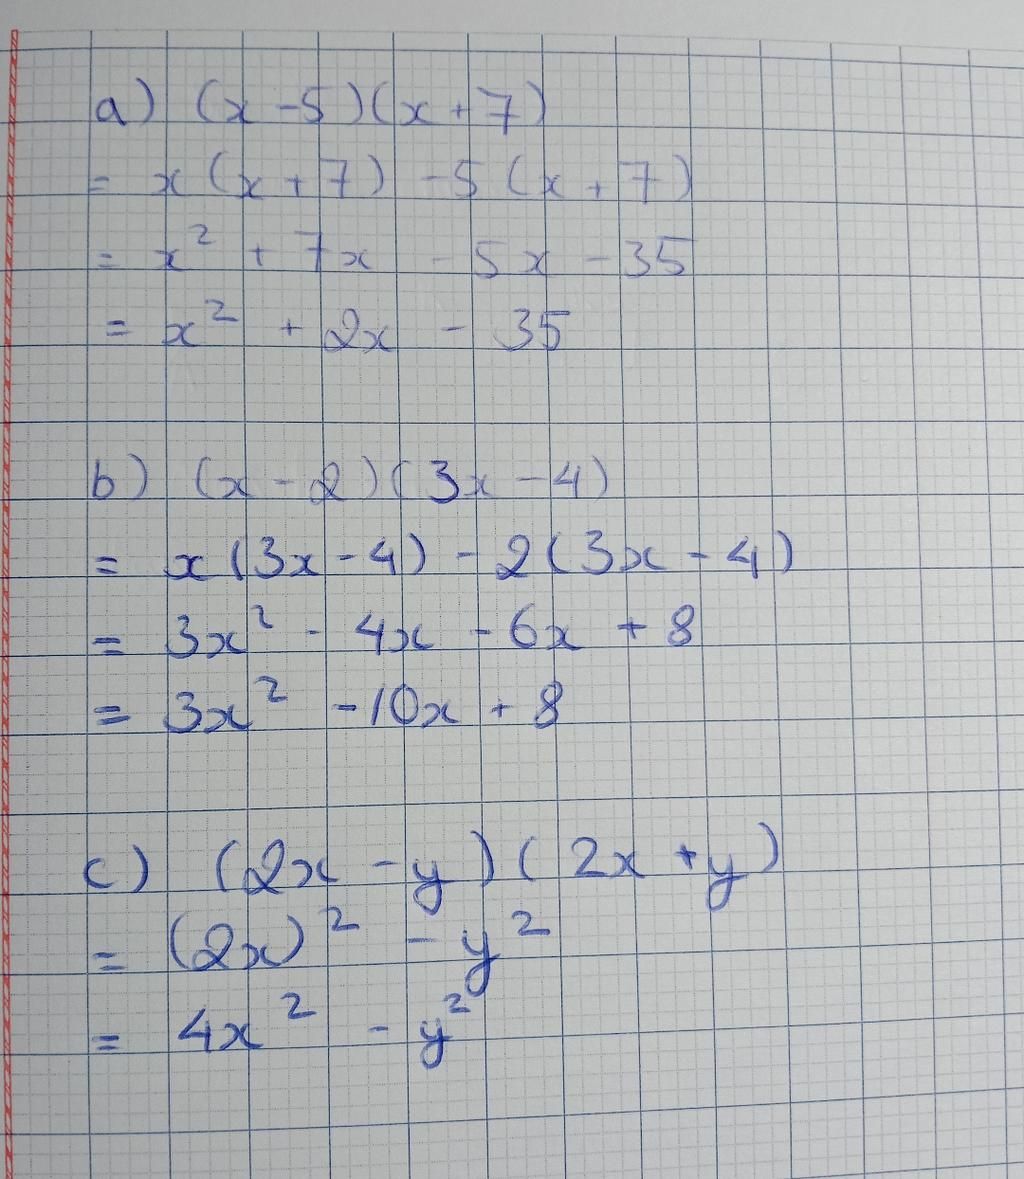 a) (x - 5)(x + 7)
= x(x + 7) - 5(x + 7)
= x² + 7x - 5x - 35
= x² + 2x - 35
b) (x - 2)(3x - 4)
= x(3x - 4) - 2(3x - 4)
= 3x² - 4x - 6x + 8
= 3x² - 10x + 8
c) (2x - y)(2x + y)
= (2x)² - y²
= 4x² - y²